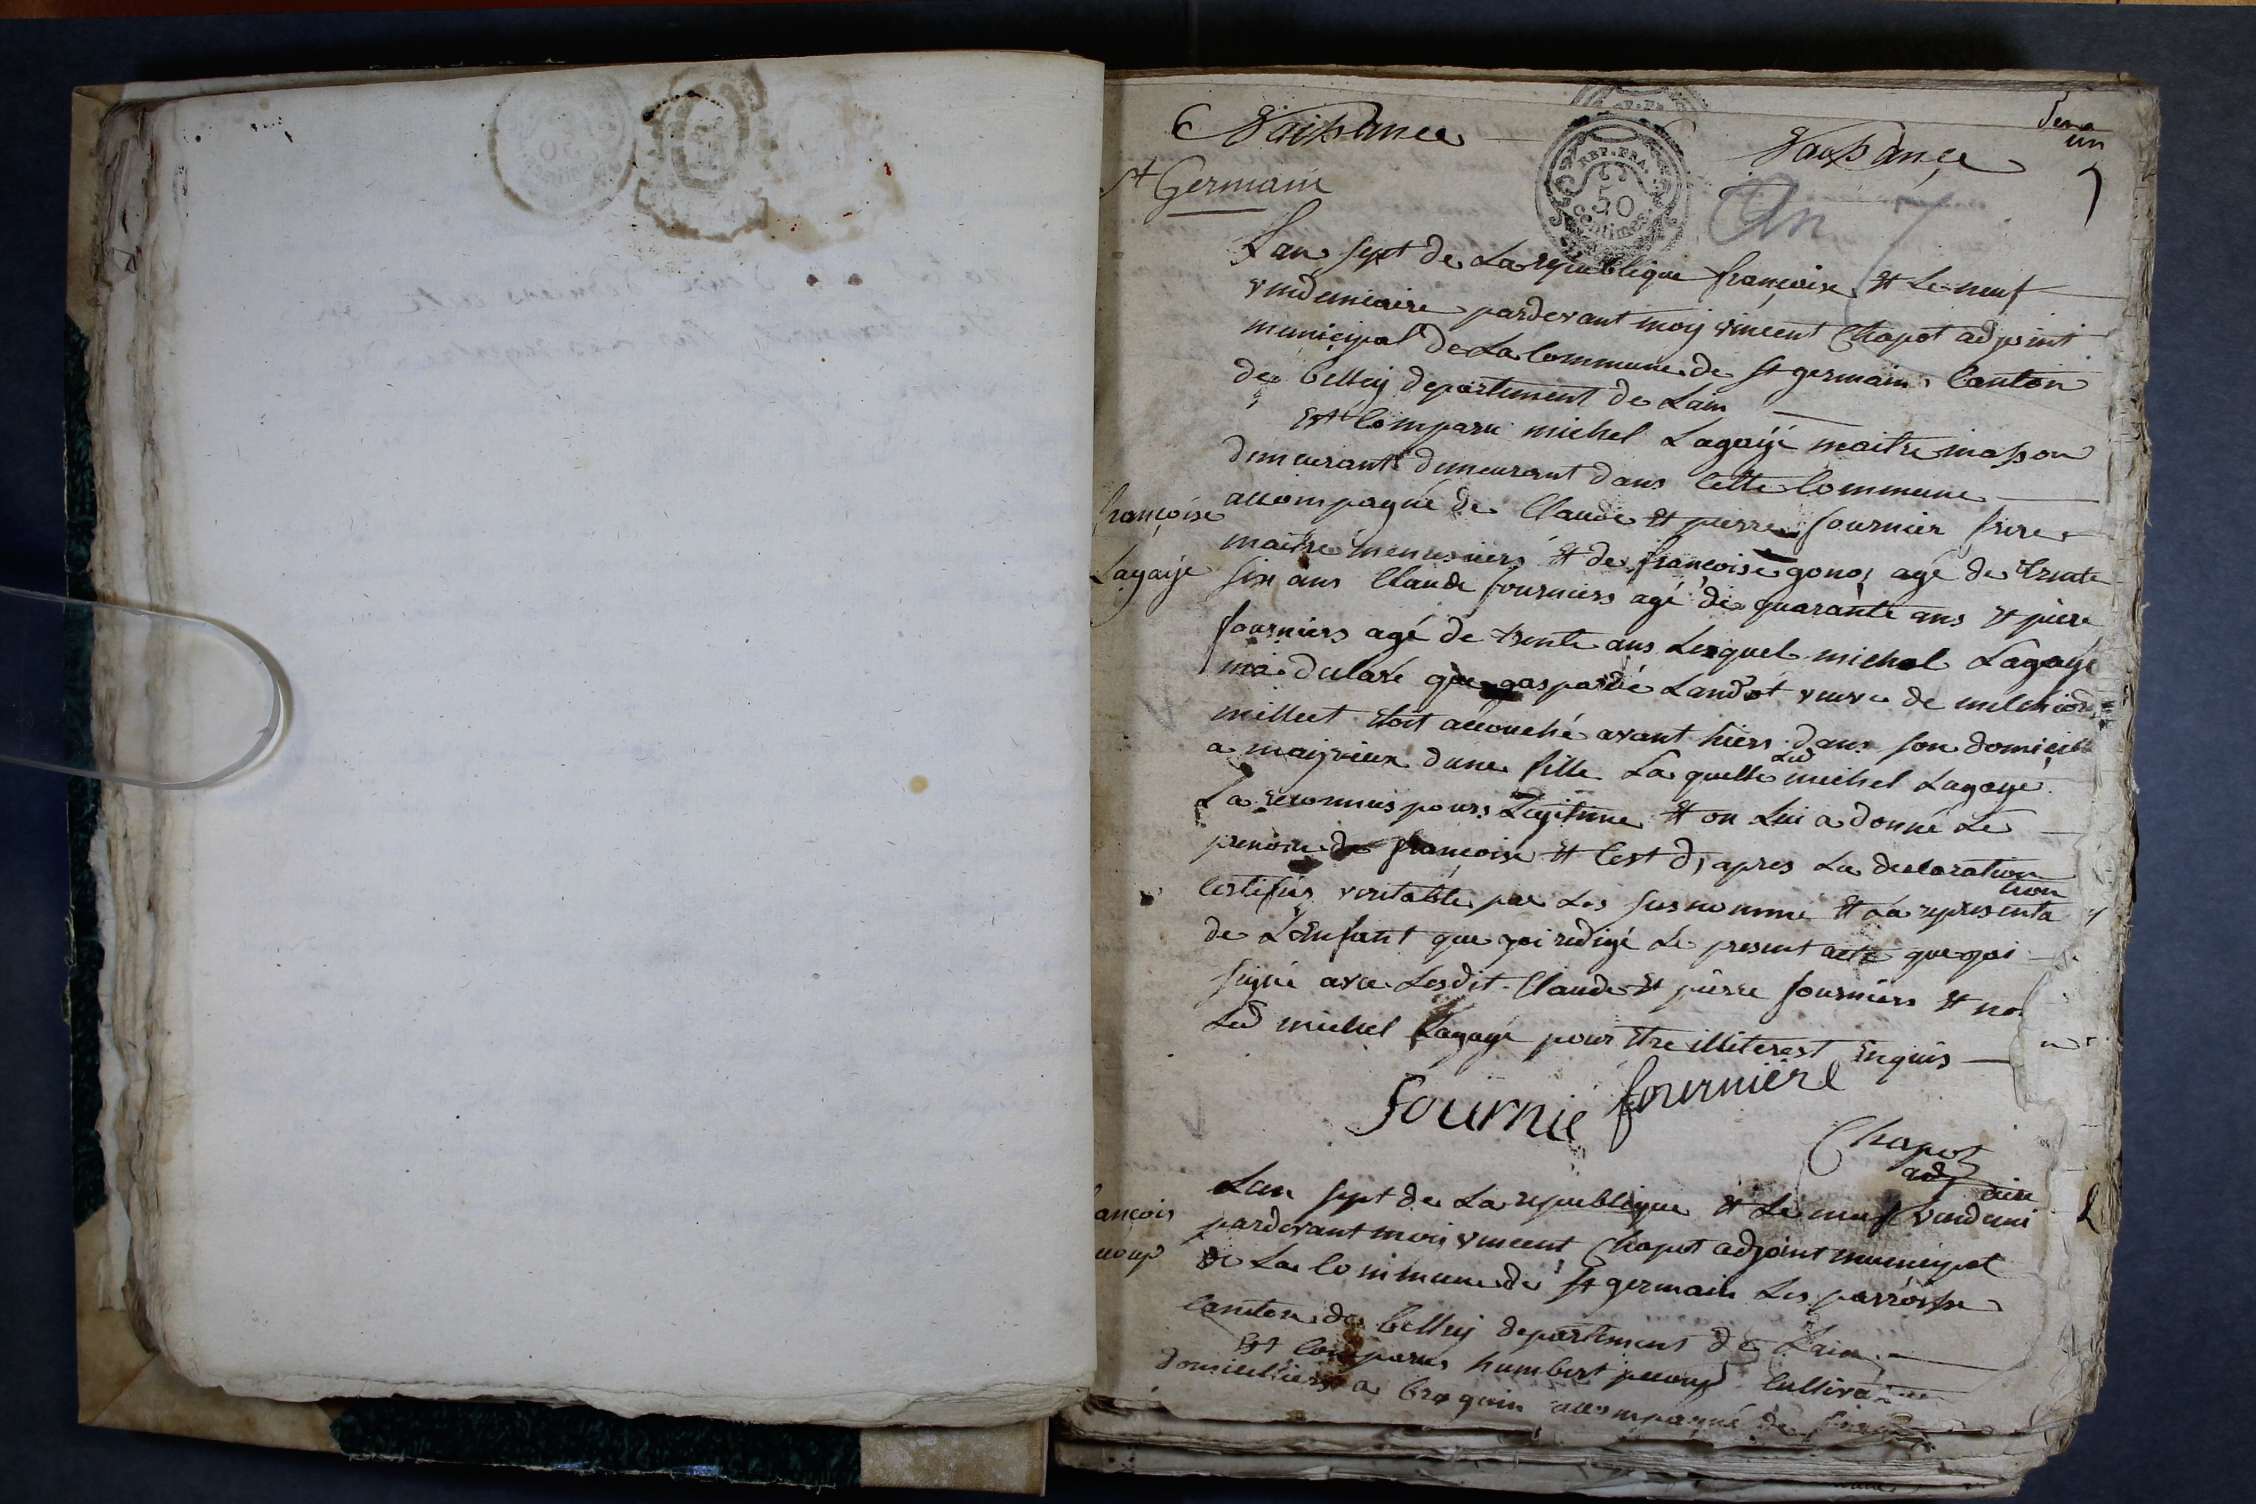 6 Naissance
Naissance
un
St Germain
REP. FRA.
50
centimes
An 7
Lan sept de La republique françoise et Le neuf
vindemiaire pardevant moy vincent Chapot adjoint
municipal de La Commune de st germain Canton
de belley departement de Lain
Est Comparu michel Lagayé maitre masson
demeurant demeurant dans Cette Commune
accompagné de Claude et pierre fournier frere
maitre menusiers et de françoise gono, agé de trente
six ans Claude fourniers agé de quarante ans et piere
fourniers agé de trente ans Lesquel michel Lagayé
ma declaré que gasparde Landot veuve de melchiod
millet etoit accouché avant hiers dans son domicille
a meyrieux dune fille La quelle Led michel Lagayé
La reconnus pours Legitime et on Lui a donné Le
prenom de françoise et Cest d, apres La declaration
Certifiés veritable par Les susnommé et La representa
tion
de L'Enfant que jai redigé Le present acte que jai
signé avec Lesdit Claude et pierre fourniers et no
Led michel Lagayé pour Etre illiterest Enquis
françoise
Lagaye
fournie fourniere
Chapot
adj
Lan sept de La republique et Le neuf vindemi
aire
pardevant moi vincent Chapot adjoint municipal
de La Commune de st germain Les parroisse
Canton de belley departement de Lain
Est Comparus humbert pecoup Cultiva
domicilliers a brognin accompagné de
ançois
ecoup
2